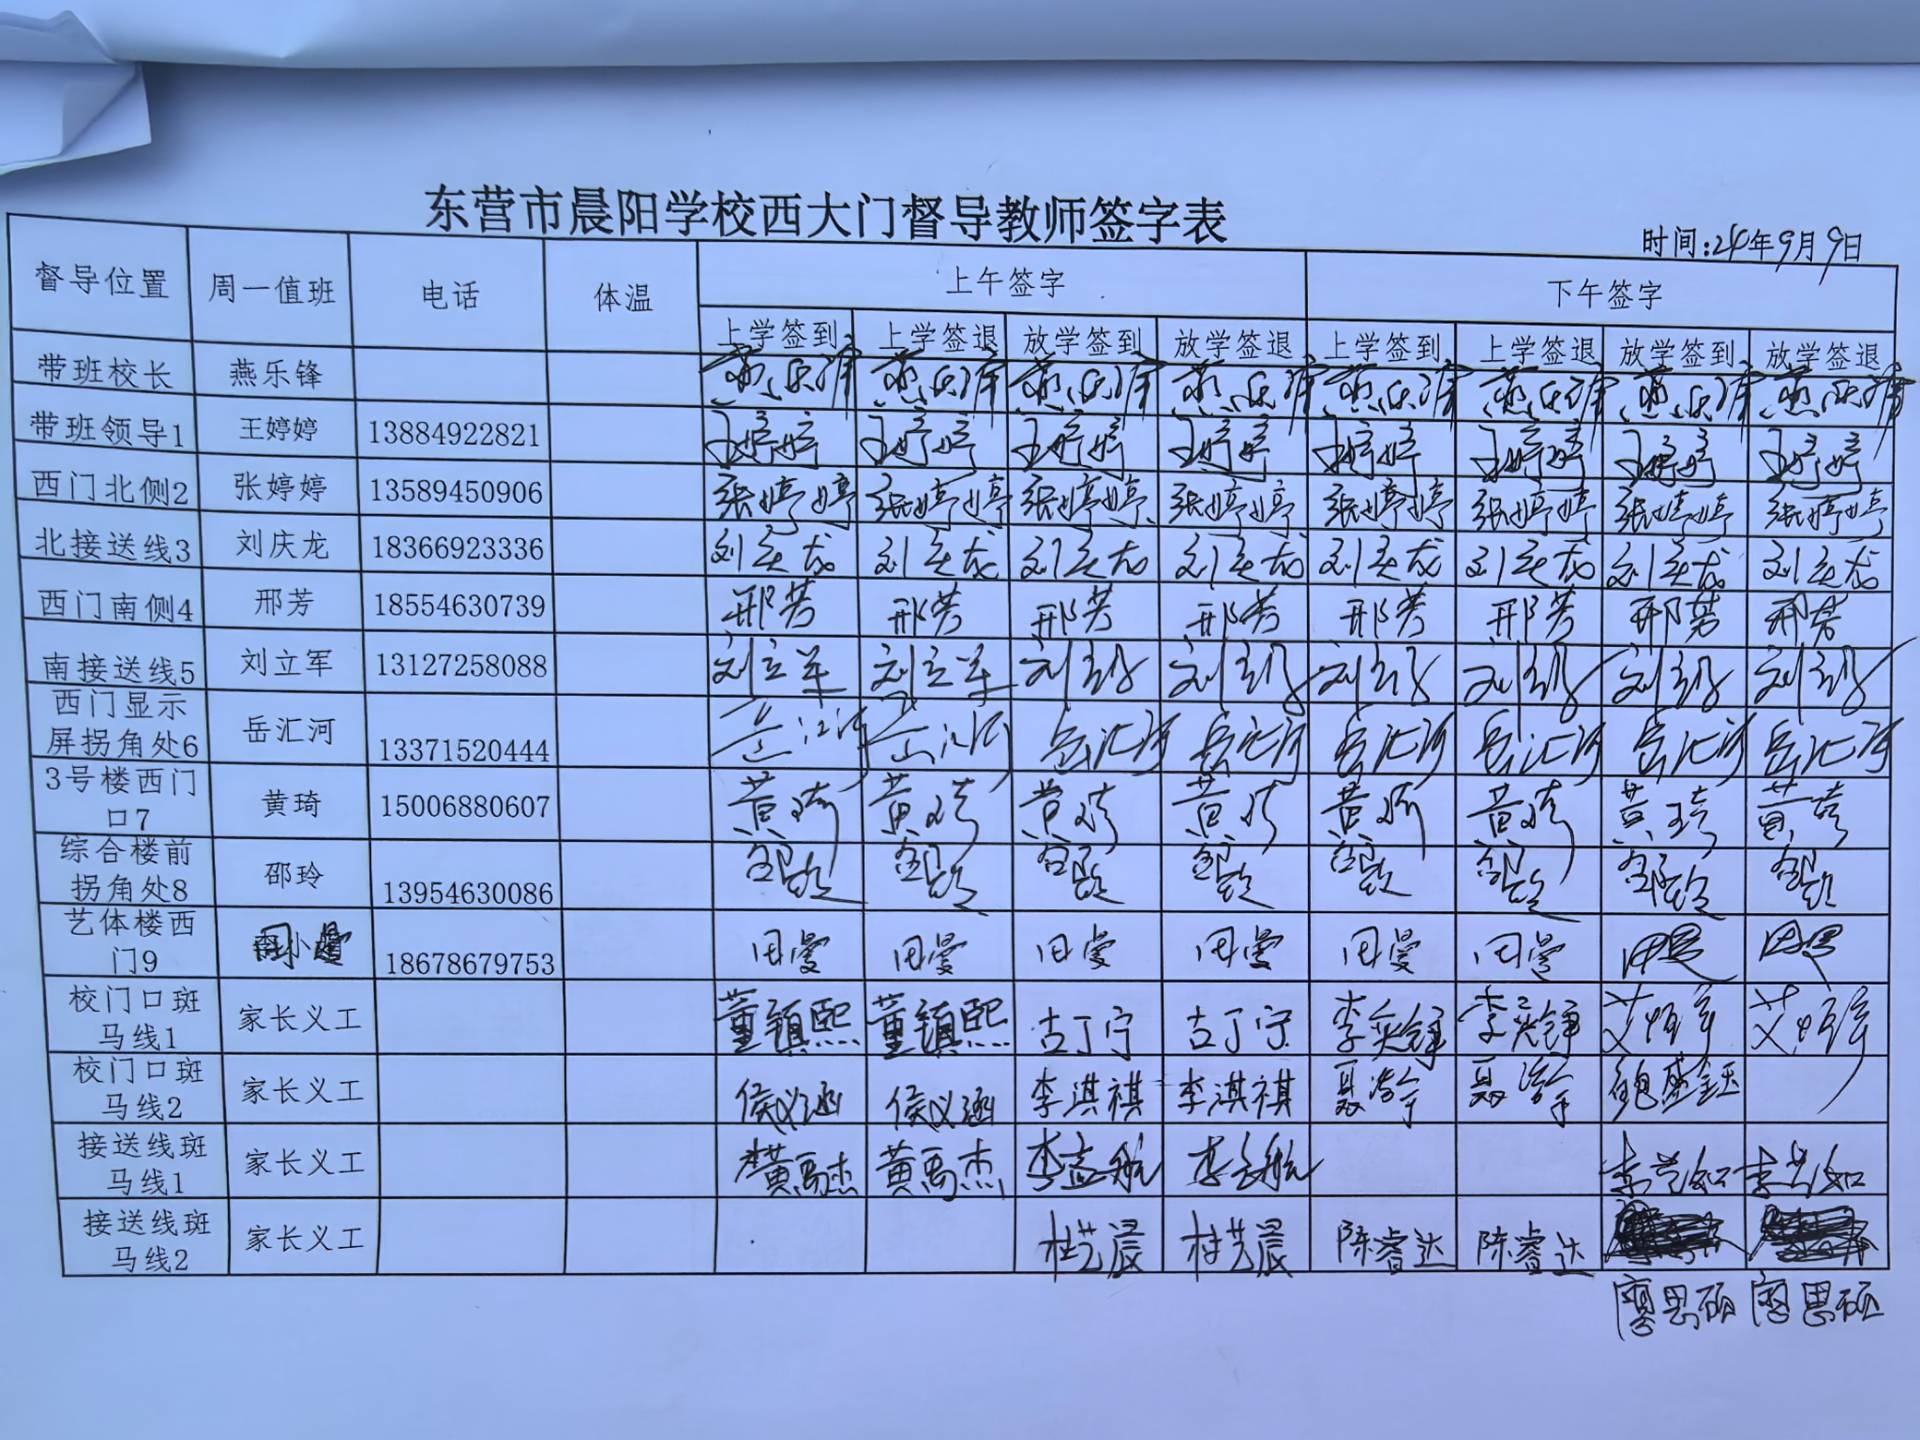 东营市晨阳学校西大门督导教师签字表
时间:24年9月9日
督导位置 周一值班 电话 体温 上午签字 下午签字
上学签到 上学签退 放学签到 放学签退 上学签到 上学签退 放学签到 放学签退
带班校长 燕乐锋 燕乐锋 燕乐锋 燕乐锋 燕乐锋 燕乐锋 燕乐锋 燕乐锋 燕乐锋
带班领导1 王婷婷 13884922821 王婷婷 王婷婷 王婷婷 王婷婷 王婷婷 王婷婷 王婷婷 王婷婷
西门北侧2 张婷婷 13589450906 张婷婷 张婷婷 张婷婷 张婷婷 张婷婷 张婷婷 张婷婷 张婷婷
北接送线3 刘庆龙 18366923336 刘庆龙 刘庆龙 刘庆龙 刘庆龙 刘庆龙 刘庆龙 刘庆龙 刘庆龙
西门南侧4 邢芳 18554630739 邢芳 邢芳 邢芳 邢芳 邢芳 邢芳 邢芳 邢芳
南接送线5 刘立军 13127258088 刘立军 刘立军 刘立军 刘立军 刘立军 刘立军 刘立军 刘立军
西门显示
屏拐角处6 岳汇河 13371520444 岳汇河 岳汇河 岳汇河 岳汇河 岳汇河 岳汇河 岳汇河 岳汇河
3号楼西门
口7 黄琦 15006880607 黄琦 黄琦 黄琦 黄琦 黄琦 黄琦 黄琦 黄琦
综合楼前
拐角处8 邵玲 13954630086 邵玲 邵玲 邵玲 邵玲 邵玲 邵玲 邵玲 邵玲
艺体楼西
门9 田曼 18678679753 田曼 田曼 田曼 田曼 田曼 田曼 田曼 田曼
校门口斑
马线1 家长义工 董镇熙 董镇熙 古丁宁 古丁宁 李奕铮 李奕铮
校门口斑
马线2 家长义工 侯义涵 侯义涵 李淇祺 李淇祺 鲍盛钰
接送线斑
马线1 家长义工 黄禹杰 黄禹杰 李孟航 李孟航
接送线斑
马线2 家长义工 杜艺晨 杜艺晨 陈睿达 陈睿达
廖思硕 廖思硕